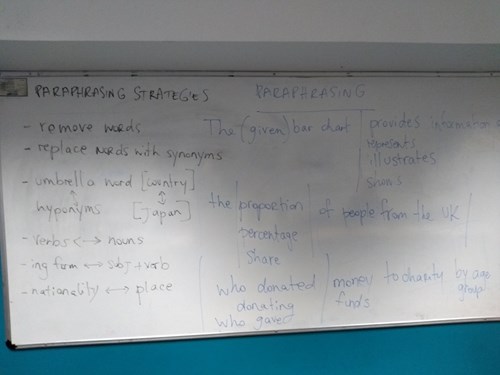 PARAPHRASING STRATEGIES
- remove words
- replace words with synonyms
- umbrella word [country]
hyponyms [Japan]
- verbs <-> nouns
- ing form <-> sbj + verb
- nationality <-> place
PARAPHRASING
The (given) bar chart provides information
represents
illustrates
shows
the proportion of people from the UK
percentage
share
who donated money to charity by age group
donating funds
who gave